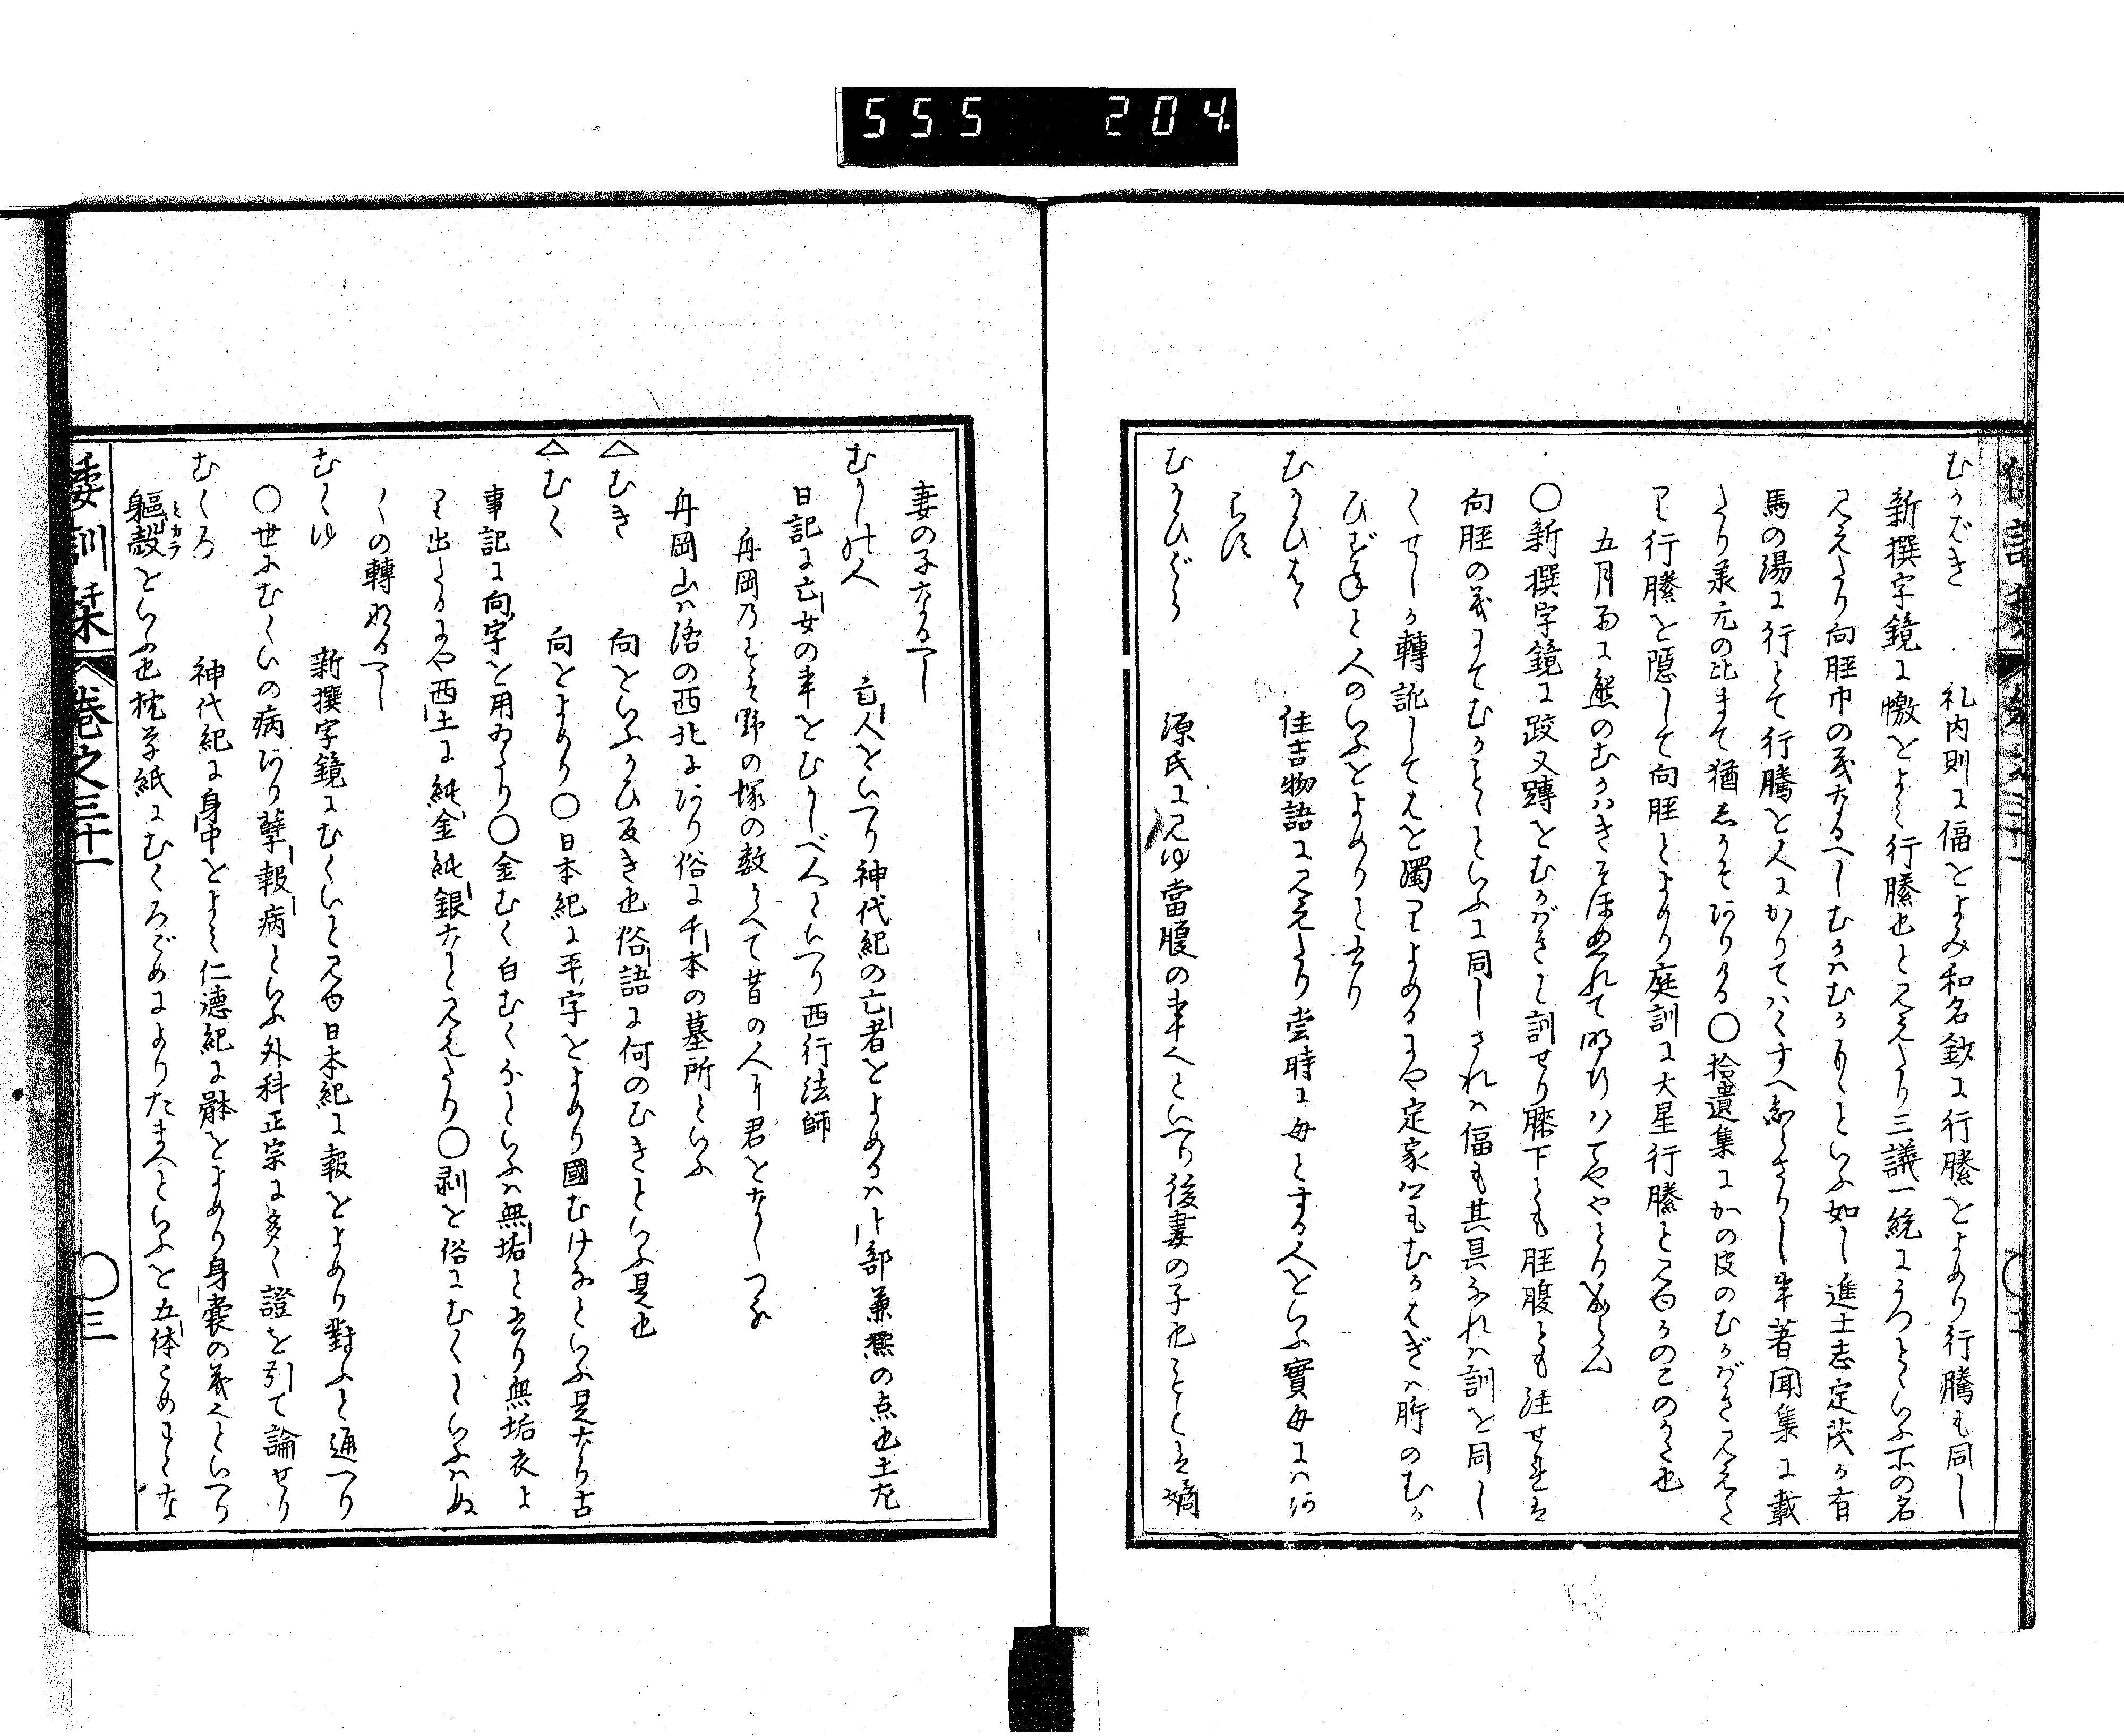 555 204
むかばき 礼内則に偪とよみ和名鈔に行縢とよめり行騰も同し
新撰字鏡に幑とよミ行縢也と見えたり三議一統にうつとといふ不の名
見えたり向脛巾の義なるへしむかハむかもゝといふ如し進士志定茂か有
馬の湯に行とて行騰を人にかりてハくすへ知らさりし事著聞集に載
たり承元の比まて猶しかそありける〇拾遺集にかの皮のむかばき見えたり
行縢を隠して向脛とよめり庭訓に大星行縢と見ゆかのこのかた也
五月雨に熊のむかハきそほぬれて
〇新撰字鏡に跤又䠙をむかばきと訓せり膝下とも脛腹とも注せれは
向脛の義にてむかもゝといふに同しされハ偪も其具なれハ訓を同し
くせしか轉訛してはを濁てよめるにや定家卿もむかはぎハ䯒のむか
ひずねと人のいふとよめりと云り
むかひはゝ 住吉物語に見えたり当時に母とする人をいふ實母にハあ
らす
むかひばら 源氏に見ゆ當腹の事へといへり後妻の子也こゝは嫡
妻の子なるへし
むかしの人 亡人をいへり神代紀の亡者とよめるハ卜部兼熈の点也土左
日記に亡女の事をむかしべ人といへり西行法師
舟岡乃すそ野の塚の数そへて昔の人に君をなしつる
舟岡山ハ洛の西北にあり俗に千本の墓所といふ
△むき 向をいふかひ反き也俗語に何のむきといふ是也
△むく 向をよめり〇日本紀に平字をよめり國むけなといふ是なり古
事記に向字を用ゐたり〇金むく白むくなといふハ無垢と云り無垢衣よ
り出たるにや西土に純金純銀なと見えたり〇剥を俗にむくといふハぬ
くの轉れるへし
むくゆ 新撰字鏡にむくいと見ゆ日本紀に報をよめり對ふと通へり
〇世にむくいの病あり孽報病といふ外科正宗に多く證を引て論せり
むくろ 神代紀に身中をよミ仁徳紀に骵をよめり身嚢の義へといへり
軀殻をいふ也枕草紙にむくろごめによりたまへといふを五体こめにとな
ミカラ
倭訓栞 巻之三十一 〇三